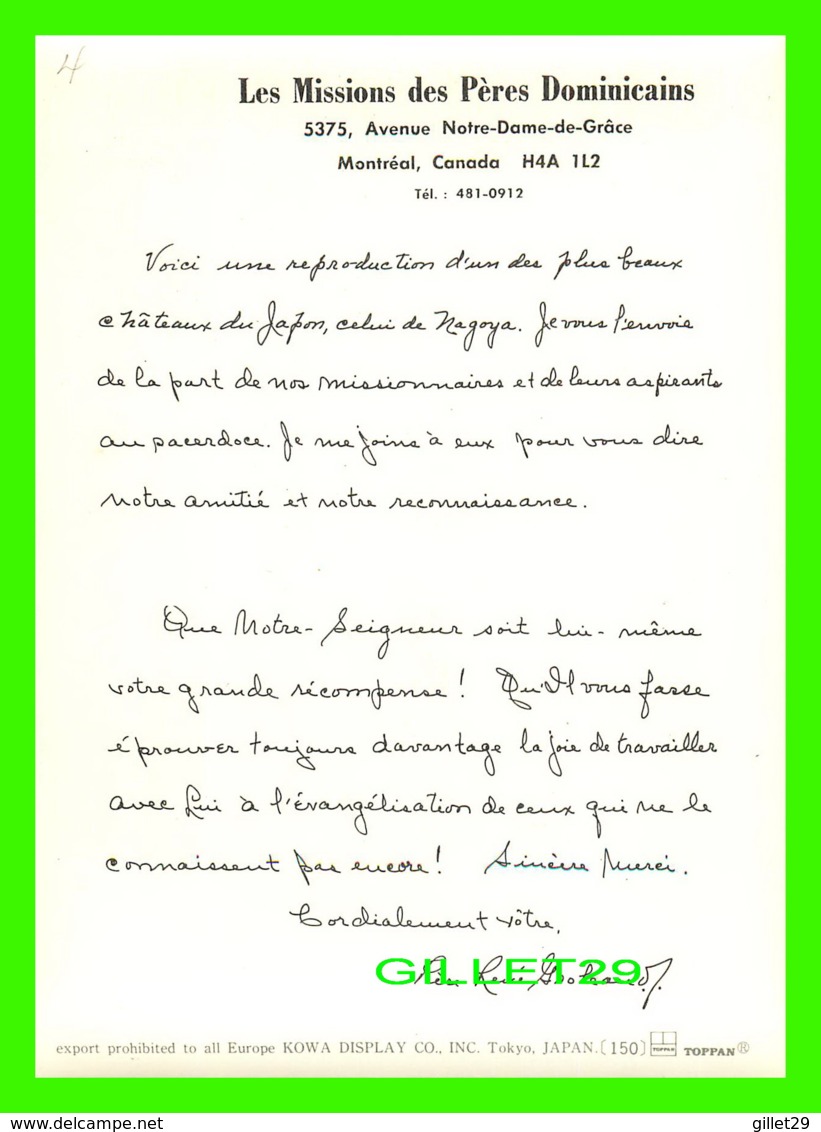 4
Les Missions des Pères Dominicains
5375, Avenue Notre-Dame-de-Grâce
Montréal, Canada H4A 1L2
Tél. : 481-0912
Voici une reproduction d'un des plus beaux
châteaux du Japon, celui de Nagoya. Je vous l'envoie
de la part de nos missionnaires et de leurs aspirants
au sacerdoce. Je me joins à eux pour vous dire
notre amitié et notre reconnaissance.
Que Notre-Seigneur soit lui-même
votre grande récompense! Qu'Il vous fasse
éprouver toujours davantage la joie de travailler
avec Lui à l'évangélisation de ceux qui ne le
connaissent pas encore! Sincère Merci.
Cordialement vôtre,
Père René
GILLET29
export prohibited to all Europe KOWA DISPLAY CO., INC. Tokyo, JAPAN. [150] TOPPAN TOPPAN®
www.delcampe.net
gillet29